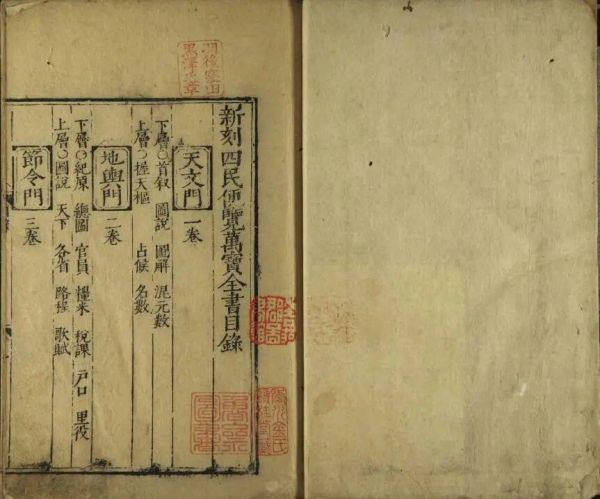 新刻四民便覽萬寶全書目錄
天文門 一卷
下層〇首叙 圖說 圖解 混元數
上層〇握天樞 占候 名數
地輿門 二卷
下層〇紀原 總圖 官員 糧米 稅課 戶口 里役
上層〇圖說 天下 各省 路程 歌賦
節令門 三卷